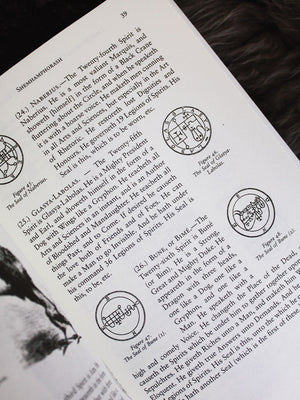 39
SHEMHAMPHORASH
(24.) NABERIUS.—The Twenty-fourth Spirit is
Naberius. He is a most valiant Marquis, and
showeth [himself] in the form of a Black Crane
fluttering about the Circle, and when he speaketh
it is with a hoarse voice. He maketh men cunning
in all Arts and Sciences, but especially in the Art
of Rhetoric. He restoreth lost Dignities and
Honours. He governeth 19 Legions of Spirits. His
Seal is this, which is to be worn, etc.
The Seal of Naberius.
(25.) GLASYA-LABOLAS.—The Twenty-fifth
Spirit is Glasya-Labolas. He is a Mighty President
and Earl, and showeth himself in the form of a
Dog with Wings like a Gryphon. He teacheth all
Arts and Sciences in an instant, and is an Author
of Bloodshed and Manslaughter. He teacheth all
things Past, and to Come. If desired he causeth
the love both of Friends and
make a Man to go Invisible. And he hath under
his command 36 Legions of Spirits. His Seal is
this, to be, etc.
Figure 46.
The Seal of Glasya-
Labolas.
(26.) BUNE, or BIME.—The
Twenty-sixth Spirit is Bune
(or Bim). He is a Strong,
Great and Mighty Duke. He
appeareth in the form of a
Dragon with three heads,
one like a Dog, one like a
Gryphon, and one like
a Man. He speaketh with a
high and comely Voice. He changeth the Place of the Dead,
causeth the Spirits which be under him to gather together upon
Sepulchres. He giveth Riches unto a Man, and maketh him
Eloquent. He giveth true Answers unto Demands. And he
Legions of Spirits. His Seal is this, unto the which he
hath another Seal (which is the first of these,
Figure 47.
The Seal of Bune (1).
Figure 48.
The Seal of Bune (2).